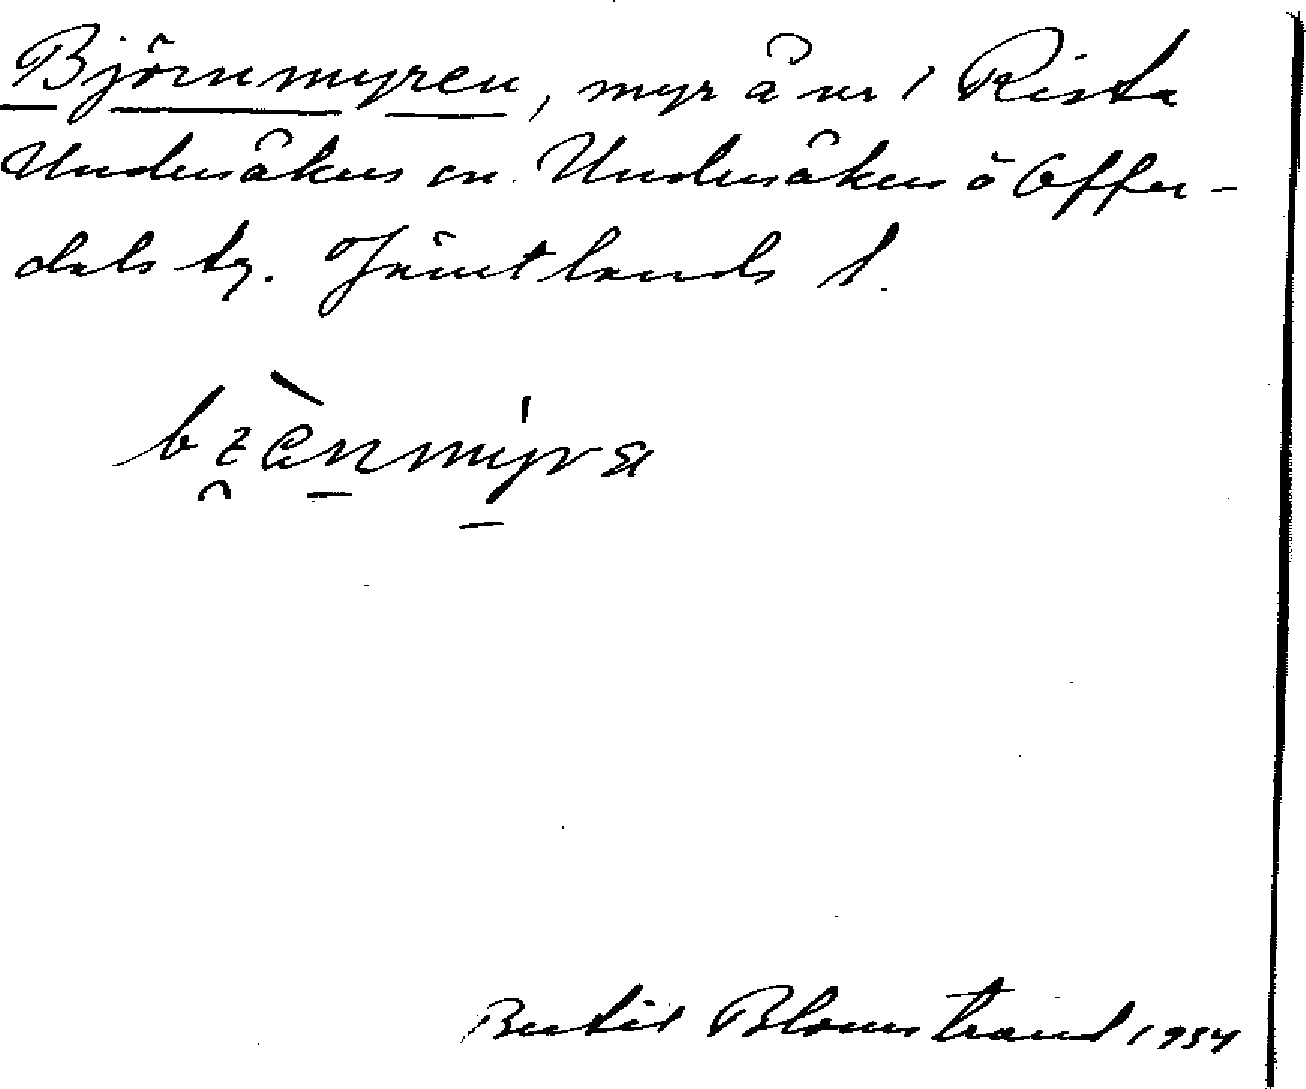 Björnmyren, myr å nr 1 Rista
Undersåkers sn. Undersåkers o Offer-
dals tg. Jämtlands l.
Bertil Blomstrand 1934